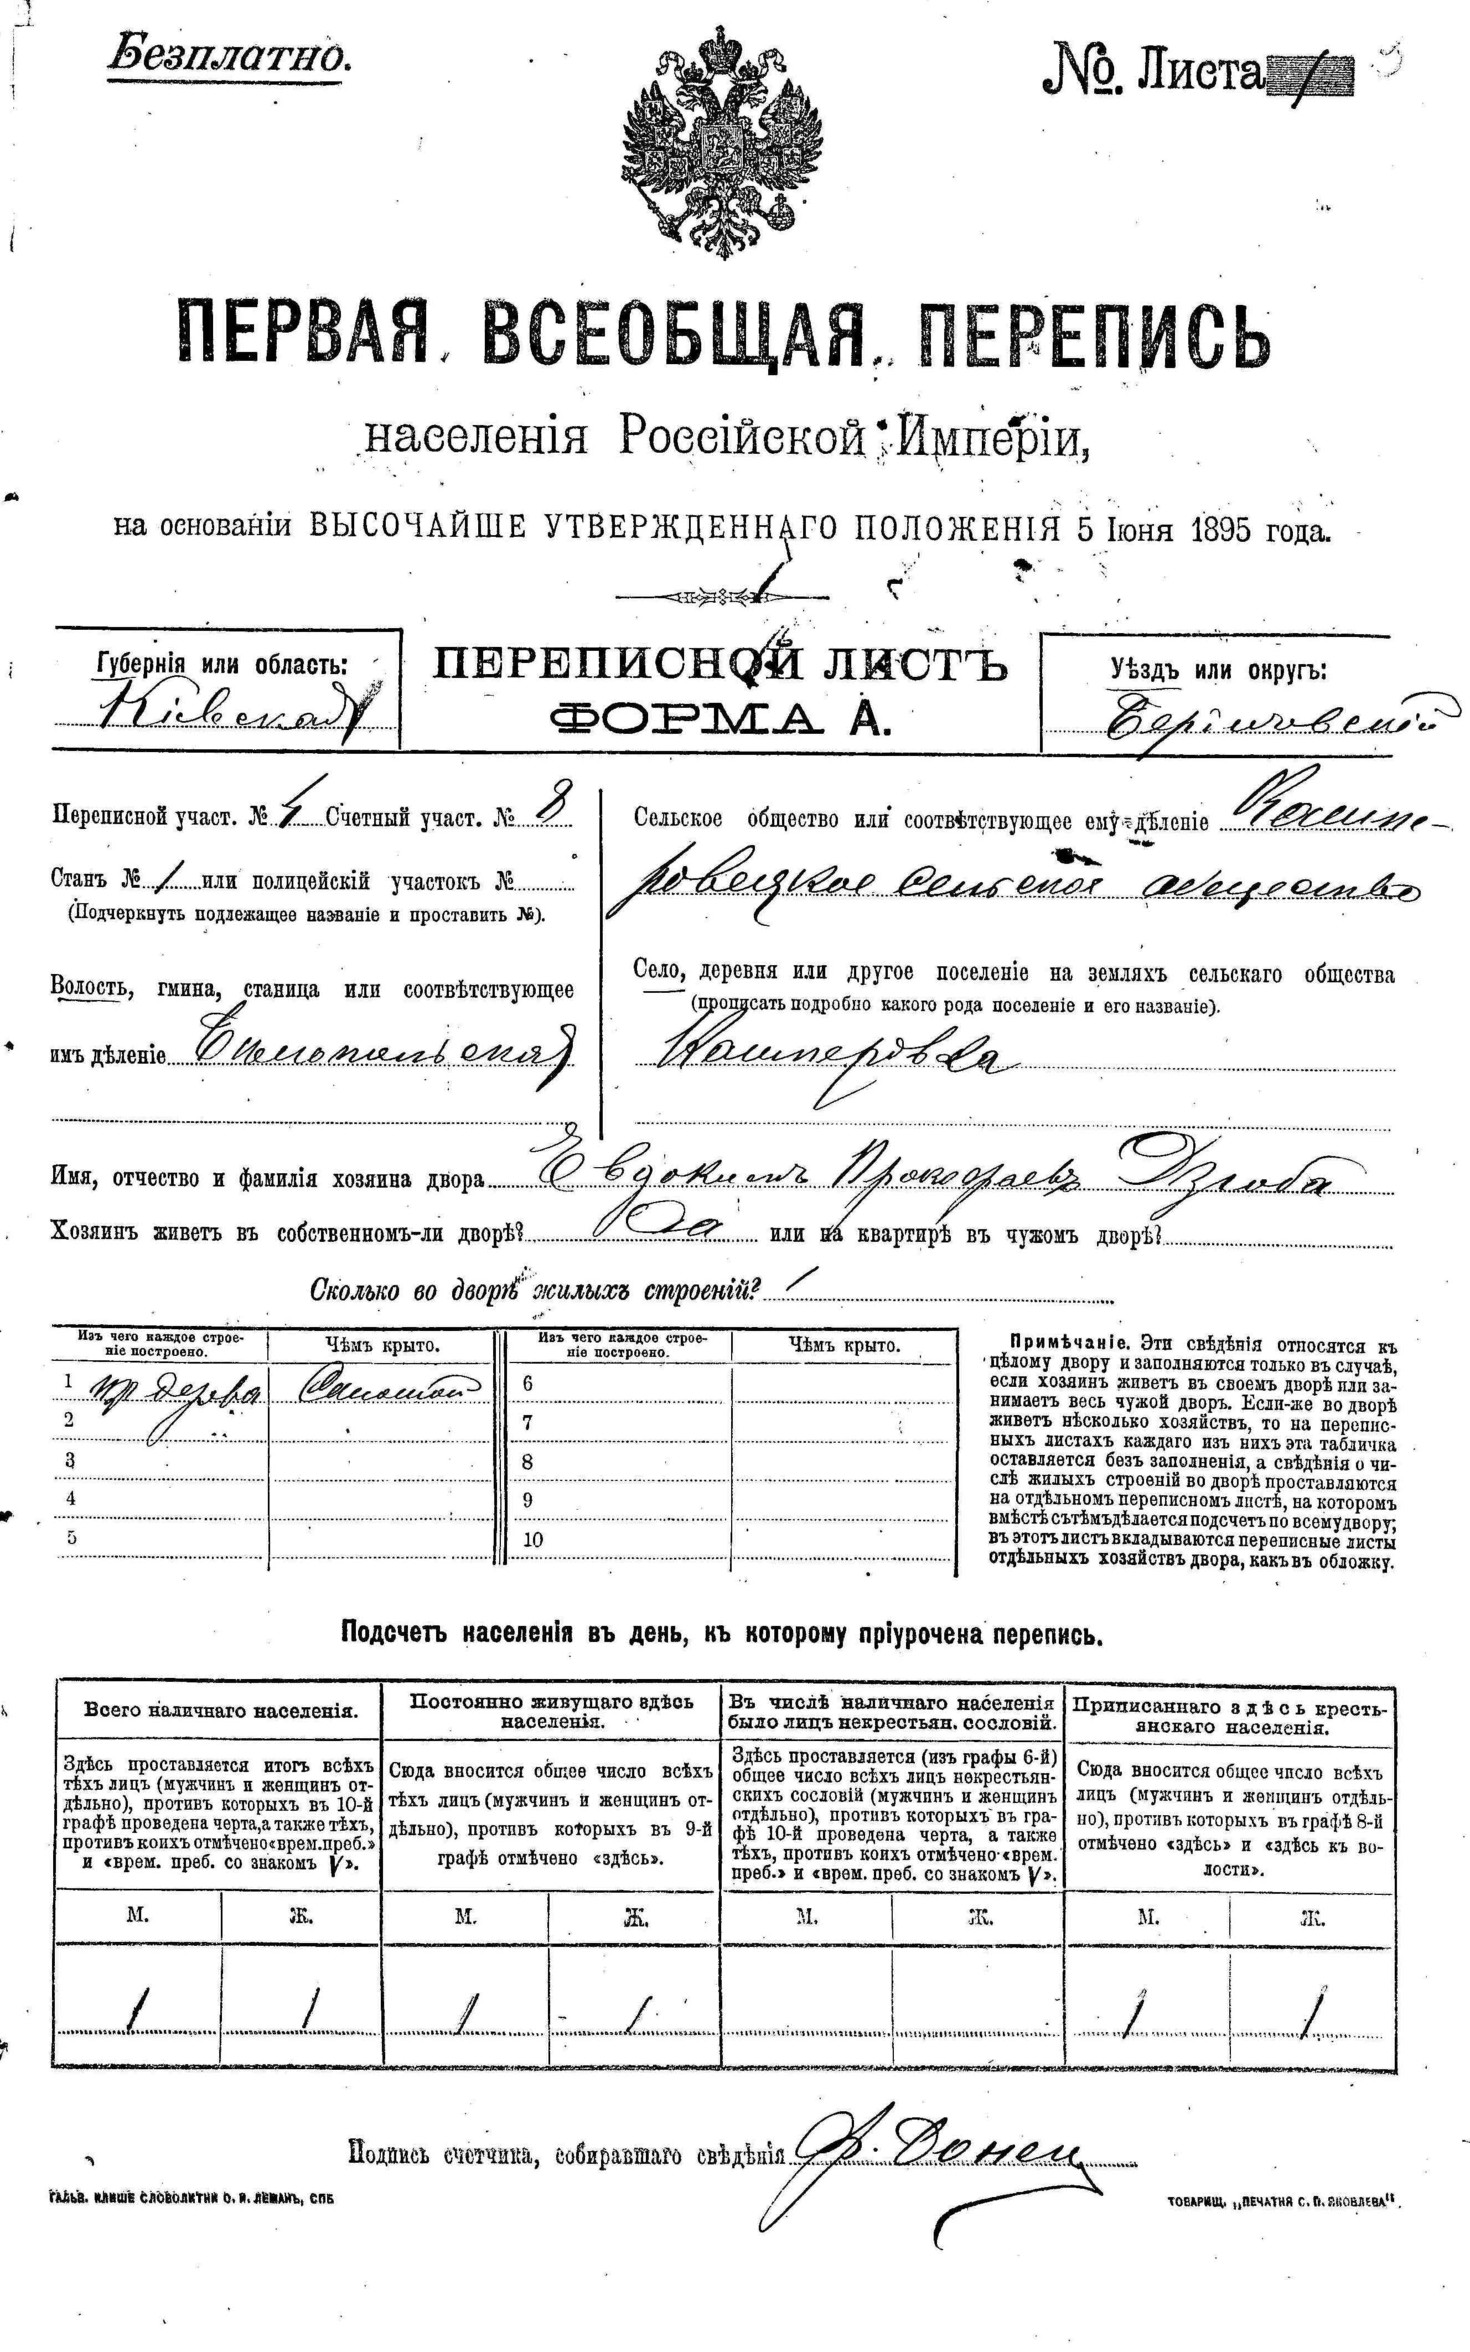 Безплатно.
№. Листа 1
ПЕРВАЯ ВСЕОБЩАЯ ПЕРЕПИСЬ
населенія Россійской Имперіи,
на основаніи ВЫСОЧАЙШЕ УТВЕРЖДЕННАГО ПОЛОЖЕНІЯ 5 Іюня 1895 года.
Губернія или область:
Кіевская
ПЕРЕПИСНОЙ ЛИСТЪ
ФОРМА А.
Уѣздъ или округъ:
Бердичевскій
Переписной участ. № 4 Счетный участ. № 8
Станъ № 1 или полицейскій участокъ №
(Подчеркнуть подлежащее названіе и проставить №).
Волость, гмина, станица или соотвѣтствующее
имъ дѣленіе Бѣлопольская
Сельское общество или соотвѣтствующее ему дѣленіе Кашпе-
ровецкое сельское общество
Село, деревня или другое поселеніе на земляхъ сельскаго общества
(прописать подробно какого рода поселеніе и его названіе).
Кашперовка
Имя, отчество и фамилія хозяина двора Евдокимъ Прокофьевъ Дзюба
Хозяинъ живетъ въ собственномъ-ли дворѣ? Да или на квартирѣ въ чужомъ дворѣ?
Сколько во дворѣ жилыхъ строеній? 1
Изъ чего каждое строе-
ніе построено.
Чѣмъ крыто.
Изъ чего каждое строе-
ніе построено.
Чѣмъ крыто.
1 изъ дерева Соломой 6
2 7
3 8
4 9
5 10
Примѣчаніе. Эти свѣдѣнія относятся къ
цѣлому двору и заполняются только въ случаѣ,
если хозяинъ живетъ въ своемъ дворѣ или за-
нимаетъ весь чужой дворъ. Если-же во дворѣ
живетъ нѣсколько хозяйствъ, то на перепис-
ныхъ листахъ каждаго изъ нихъ эта табличка
оставляется безъ заполненія, а свѣдѣнія о чи-
слѣ жилыхъ строеній во дворѣ проставляются
на отдѣльномъ переписномъ листѣ, на которомъ
вмѣстѣ съ тѣмъ дѣлается подсчетъ по всему двору;
въ этотъ листъ вкладываются переписные листы
отдѣльныхъ хозяйствъ двора, какъ въ обложку.
Подсчетъ населенія въ день, къ которому пріурочена перепись.
Всего наличнаго населенія.
Здѣсь проставляется итогъ всѣхъ
тѣхъ лицъ (мужчинъ и женщинъ от-
дѣльно), противъ которыхъ въ 10-й
графѣ проведена черта, а также тѣхъ,
противъ коихъ отмѣчено «врем. преб.»
и «врем. преб. со знакомъ V».
Постоянно живущаго здѣсь
населенія.
Сюда вносится общее число всѣхъ
тѣхъ лицъ (мужчинъ и женщинъ от-
дѣльно), противъ которыхъ въ 9-й
графѣ отмѣчено «здѣсь».
Въ числѣ наличнаго населенія
было лицъ некрестьян. сословій.
Здѣсь проставляется (изъ графы 6-й)
общее число всѣхъ лицъ некрестьян-
скихъ сословій (мужчинъ и женщинъ
отдѣльно), противъ которыхъ въ гра-
фѣ 10-й проведена черта, а также
тѣхъ, противъ коихъ отмѣчено «врем.
преб.» и «врем. преб. со знакомъ V».
Приписаннаго здѣсь кресть-
янскаго населенія.
Сюда вносится общее число всѣхъ
лицъ (мужчинъ и женщинъ отдѣль-
но), противъ которыхъ въ графѣ 8-й
отмѣчено «здѣсь» и «здѣсь къ во-
лости».
М. Ж. М. Ж. М. Ж. М. Ж.
1 1 1 1 1 1
Подпись счетчика, собиравшаго свѣдѣнія Ф. Донец
ГАЛЬВ. КЛИШЕ СЛОВОЛИТНИ О. И. ЛЕМАНЪ, СПБ
ТОВАРИЩ. „ПЕЧАТНЯ С. П. ЯКОВЛЕВА“.